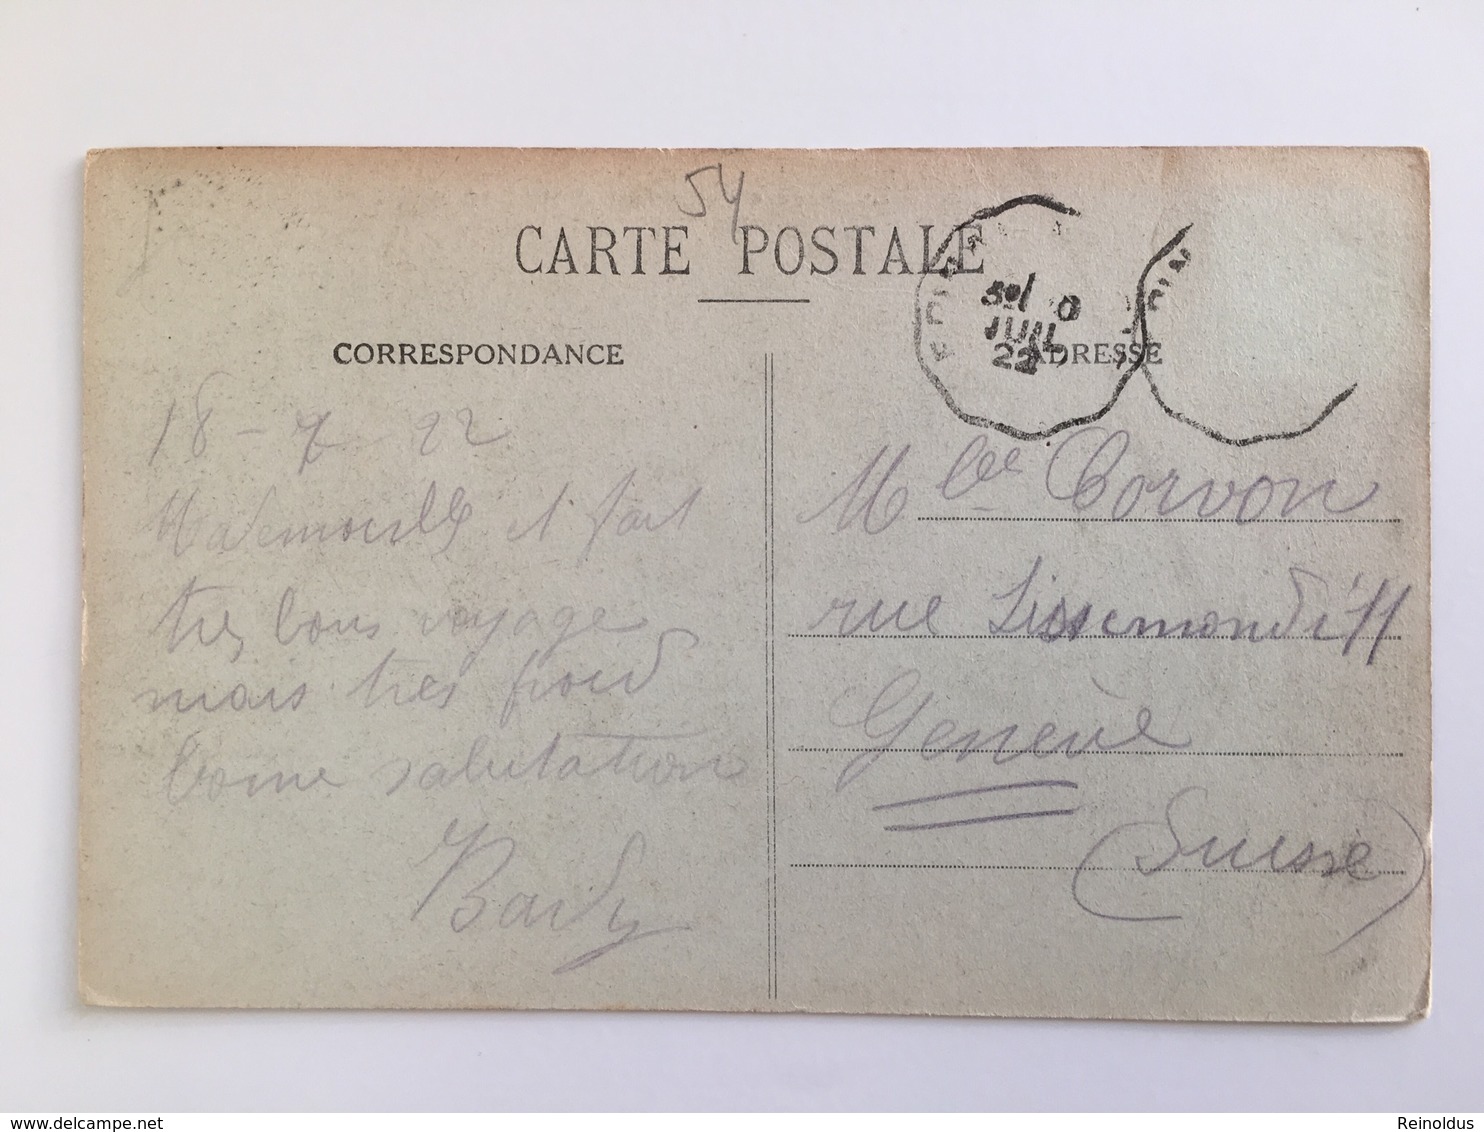 54
CARTE POSTALE
CORRESPONDANCE
ADRESSE
JUIL
22
18 - 7 22
Mademoiselle et fait
tres bons voyage
mais tres froid
bonne salutation
Bardy
Mlle Corvon
rue Lissemondi 11
Genève
(Suisse)
Reinoldus